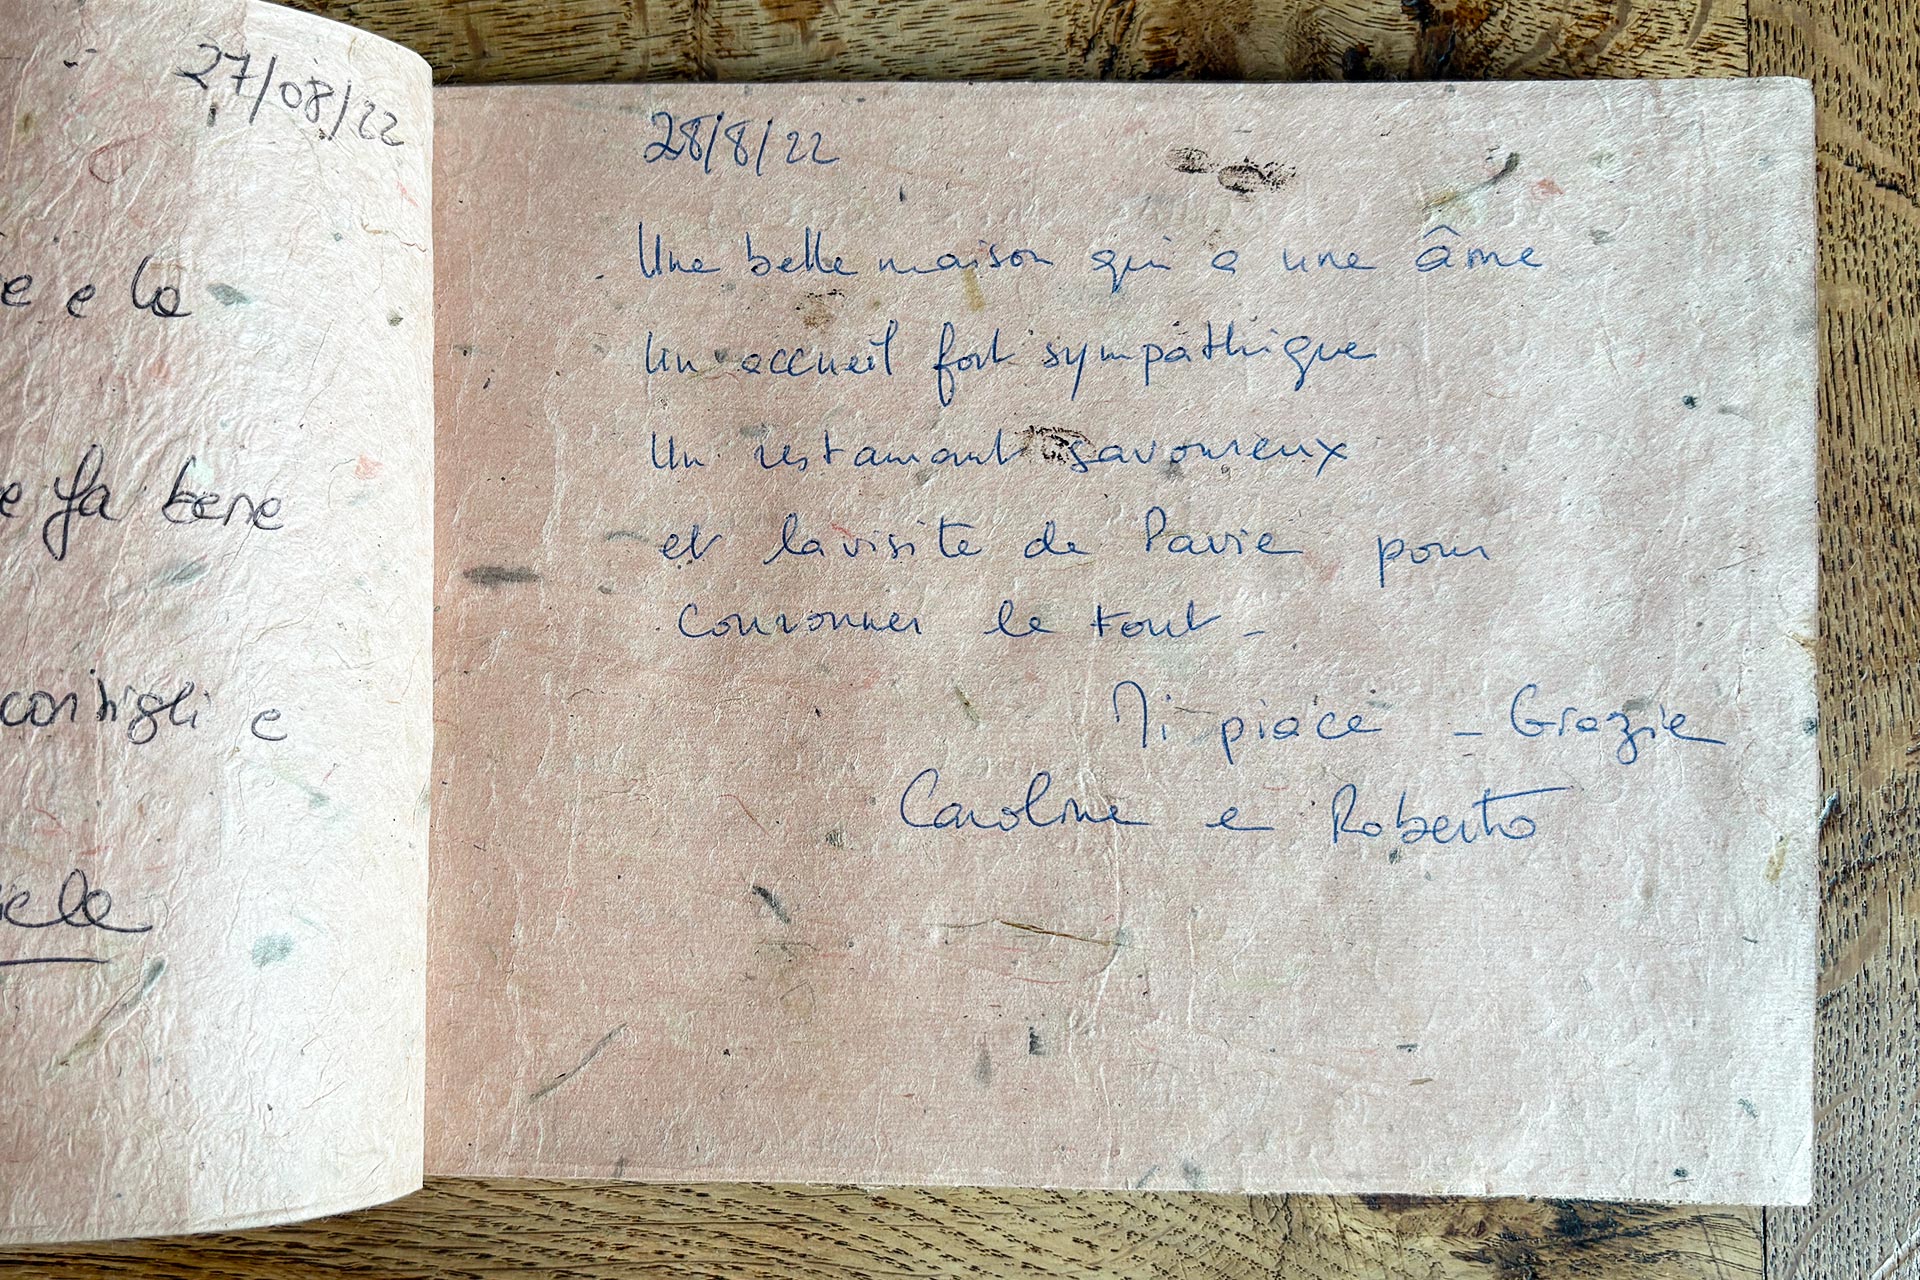 27/08/22
e e la
e fa bene
consigli e
28/8/22
Une belle maison qui a une âme
Un accueil fort sympathique
Un restaurant savoureux
et la visite de Pavie pour
couronner le tout -
Mi piace - Grazie
Caroline e Roberto